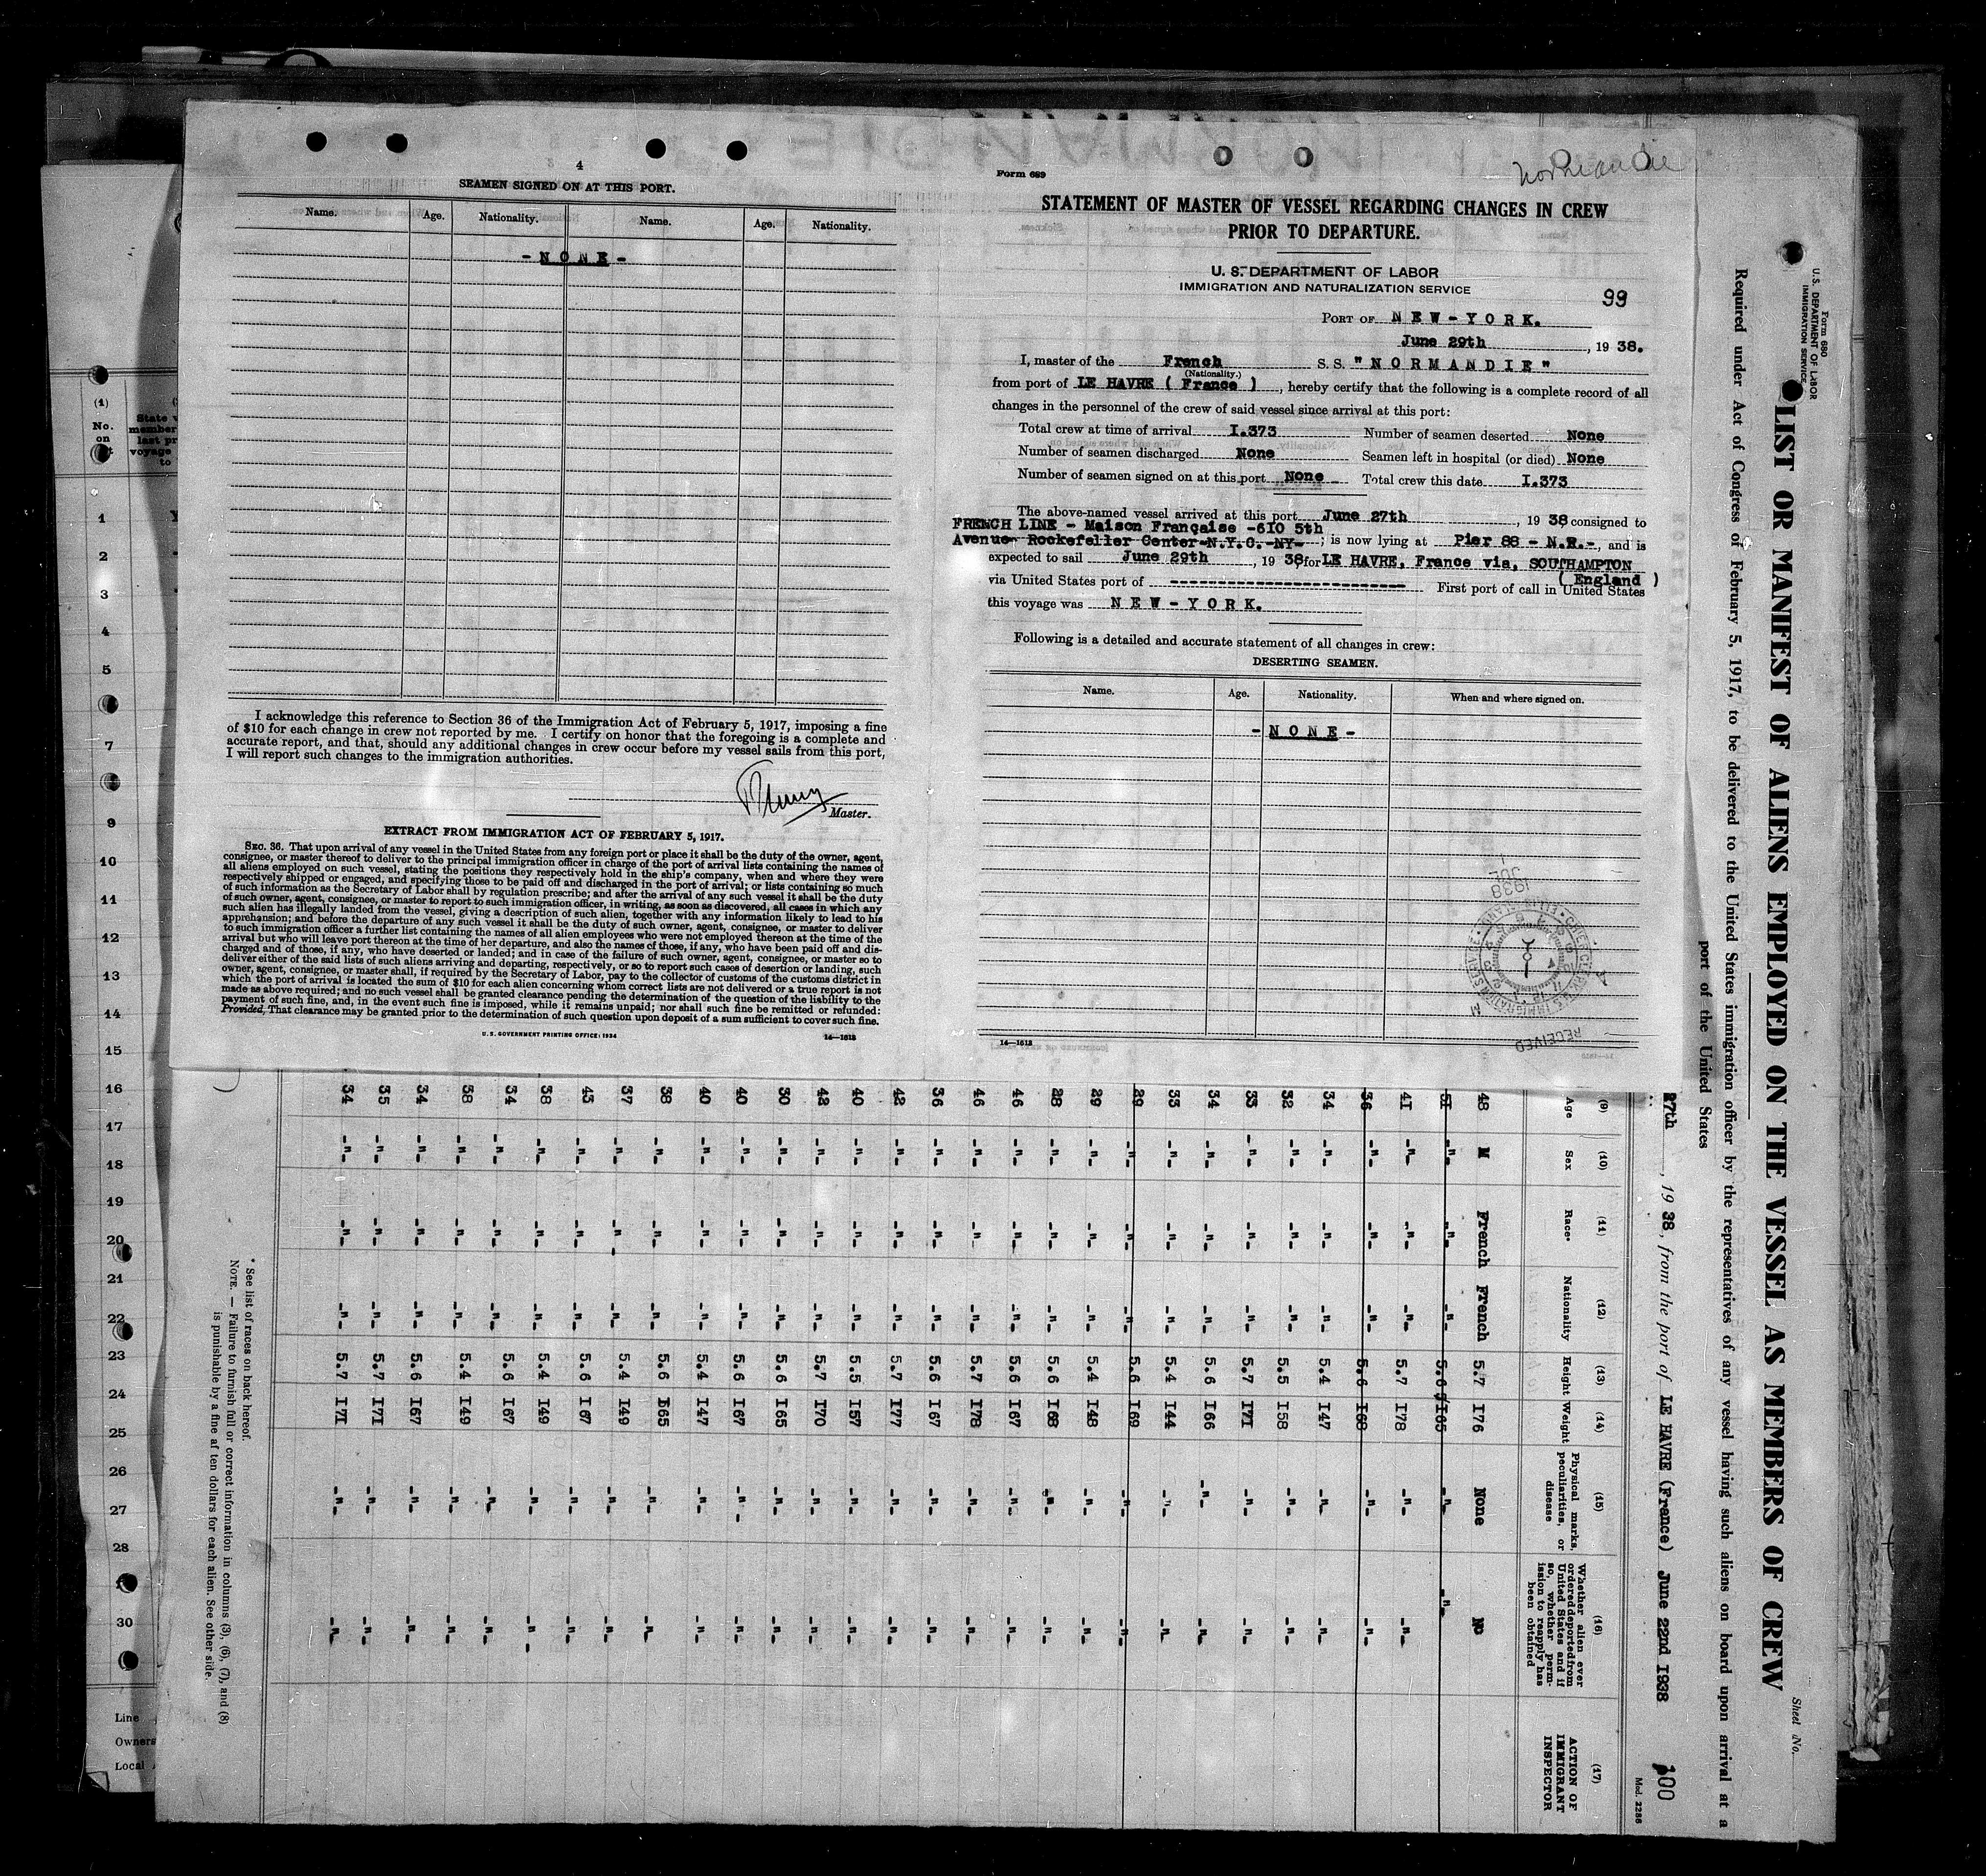 4
SEAMEN SIGNED ON AT THIS PORT.
Name. Age. Nationality. Name. Age. Nationality.
- N O N E -
I acknowledge this reference to Section 36 of the Immigration Act of February 5, 1917, imposing a fine
of $10 for each change in crew not reported by me. I certify on honor that the foregoing is a complete and
accurate report, and that, should any additional changes in crew occur before my vessel sails from this port,
I will report such changes to the immigration authorities.
Master.
EXTRACT FROM IMMIGRATION ACT OF FEBRUARY 5, 1917.
SEC. 36. That upon arrival of any vessel in the United States from any foreign port or place it shall be the duty of the owner, agent,
consignee, or master thereof to deliver to the principal immigration officer in charge of the port of arrival lists containing the names of
all aliens employed on such vessel, stating the positions they respectively hold in the ship's company, when and where they were
respectively shipped or engaged, and specifying those to be paid off and discharged in the port of arrival; or lists containing so much
of such information as the Secretary of Labor shall by regulation prescribe; and after the arrival of any such vessel it shall be the duty
of such owner, agent, consignee, or master to report to such immigration officer, in writing, as soon as discovered, all cases in which any
such alien has illegally landed from the vessel, giving a description of such alien, together with any information likely to lead to his
apprehension; and before the departure of any such vessel it shall be the duty of such owner, agent, consignee, or master to deliver
to such immigration officer a further list containing the names of all alien employees who were not employed thereon at the time of the
arrival but who will leave port thereon at the time of her departure, and also the names of those, if any, who have been paid off and dis-
charged and of those, if any, who have deserted or landed; and in case of the failure of such owner, agent, consignee, or master so to
deliver either of the said lists of such aliens arriving and departing, respectively, or so to report such cases of desertion or landing, such
owner, agent, consignee, or master shall, if required by the Secretary of Labor, pay to the collector of customs of the customs district in
which the port of arrival is located the sum of $10 for each alien concerning whom correct lists are not delivered or a true report is not
made as above required; and no such vessel shall be granted clearance pending the determination of the question of the liability to the
payment of such fine, and, in the event such fine is imposed, while it remains unpaid; nor shall such fine be remitted or refunded:
Provided, That clearance may be granted prior to the determination of such question upon deposit of a sum sufficient to cover such fine.
U. S. GOVERNMENT PRINTING OFFICE: 1934 14—1612
Form 689
Normandie
STATEMENT OF MASTER OF VESSEL REGARDING CHANGES IN CREW
PRIOR TO DEPARTURE.
U. S. DEPARTMENT OF LABOR
IMMIGRATION AND NATURALIZATION SERVICE
99
PORT OF N E W - Y O R K.
June 29th, 19 38.
I, master of the French S. S. " N O R M A N D I E "
(Nationality.)
from port of LE HAVRE ( France ), hereby certify that the following is a complete record of all
changes in the personnel of the crew of said vessel since arrival at this port:
Total crew at time of arrival I.373 Number of seamen deserted None
Number of seamen discharged None Seamen left in hospital (or died) None
Number of seamen signed on at this port None Total crew this date I.373
The above-named vessel arrived at this port June 27th, 19 38 consigned to
FRENCH LINE - Maison Française -6I0 5th
Avenue- Rockefeller Center-N.Y.C.-NY- ; is now lying at Pier 88 - N.R.-, and is
expected to sail June 29th, 19 38 for LE HAVRE, France via, SOUTHAMPTON
( England )
via United States port of ------------------------ First port of call in United States
this voyage was N E W - Y O R K.
Following is a detailed and accurate statement of all changes in crew:
DESERTING SEAMEN.
Name. Age. Nationality. When and where signed on.
- N O N E -
RECEIVED
JUL 1938
14—1612
Form 680
U. S. DEPARTMENT OF LABOR
IMMIGRATION SERVICE
Sheet No.
LIST OR MANIFEST OF ALIENS EMPLOYED ON THE VESSEL AS MEMBERS OF CREW
Required under Act of Congress of February 5, 1917, to be delivered to the United States immigration officer by the representatives of any vessel having such aliens on board upon arrival at a
port of the United States
27th, 19 38, from the port of LE HAVRE (France) June 22nd I938 100
Mod. 2286
(9) (10) (11) (12) (13) (14) (15) (16) (17)
Age Sex Race* Nationality Height Weight Physical marks, peculiarities, or disease Whether alien ever ordered deported from United States and if so, whether permission to reapply has been obtained ACTION OF IMMIGRANT INSPECTOR
48 M French French 5.7 I76 None No
5I -"- -"- -"- 5.6 I65 -"- -"-
4I -"- -"- -"- 5.7 I78 -"- -"-
36 -"- -"- -"- 5.6 I68 -"- -"-
34 -"- -"- -"- 5.4 I47 -"- -"-
32 -"- -"- -"- 5.5 I58 -"- -"-
33 -"- -"- -"- 5.7 I7I -"- -"-
34 -"- -"- -"- 5.6 I66 -"- -"-
33 -"- -"- -"- 5.4 I44 -"- -"-
29 -"- -"- -"- 5.6 I69 -"- -"-
29 -"- -"- -"- 5.4 I48 -"- -"-
28 -"- -"- -"- 5.6 I68 -"- -"-
46 -"- -"- -"- 5.6 I67 -"- -"-
46 -"- -"- -"- 5.7 I78 -"- -"-
36 -"- -"- -"- 5.6 I67 -"- -"-
42 -"- -"- -"- 5.7 I77 -"- -"-
40 -"- -"- -"- 5.5 I57 -"- -"-
42 -"- -"- -"- 5.7 I70 -"- -"-
30 -"- -"- -"- 5.6 I65 -"- -"-
40 -"- -"- -"- 5.6 I67 -"- -"-
40 -"- -"- -"- 5.4 I47 -"- -"-
38 -"- -"- -"- 5.6 I65 -"- -"-
37 -"- -"- -"- 5.4 I49 -"- -"-
43 -"- -"- -"- 5.6 I67 -"- -"-
38 -"- -"- -"- 5.4 I49 -"- -"-
34 -"- -"- -"- 5.6 I67 -"- -"-
38 -"- -"- -"- 5.4 I49 -"- -"-
34 -"- -"- -"- 5.6 I67 -"- -"-
35 -"- -"- -"- 5.7 I7I -"- -"-
34 -"- -"- -"- 5.7 I7I -"- -"-
* See list of races on back hereof.
NOTE. — Failure to furnish full or correct information in columns (3), (6), (7), and (8)
is punishable by a fine af ten dollars for each alien. See other side.
(1)
No.
on
State
member
last pr
voyage
to
1
2
3
4
5
7
9
10
11
12
13
14
15
16
17
18
19
20
21
22
23
24
25
26
27
28
30
Line
Owners
Local